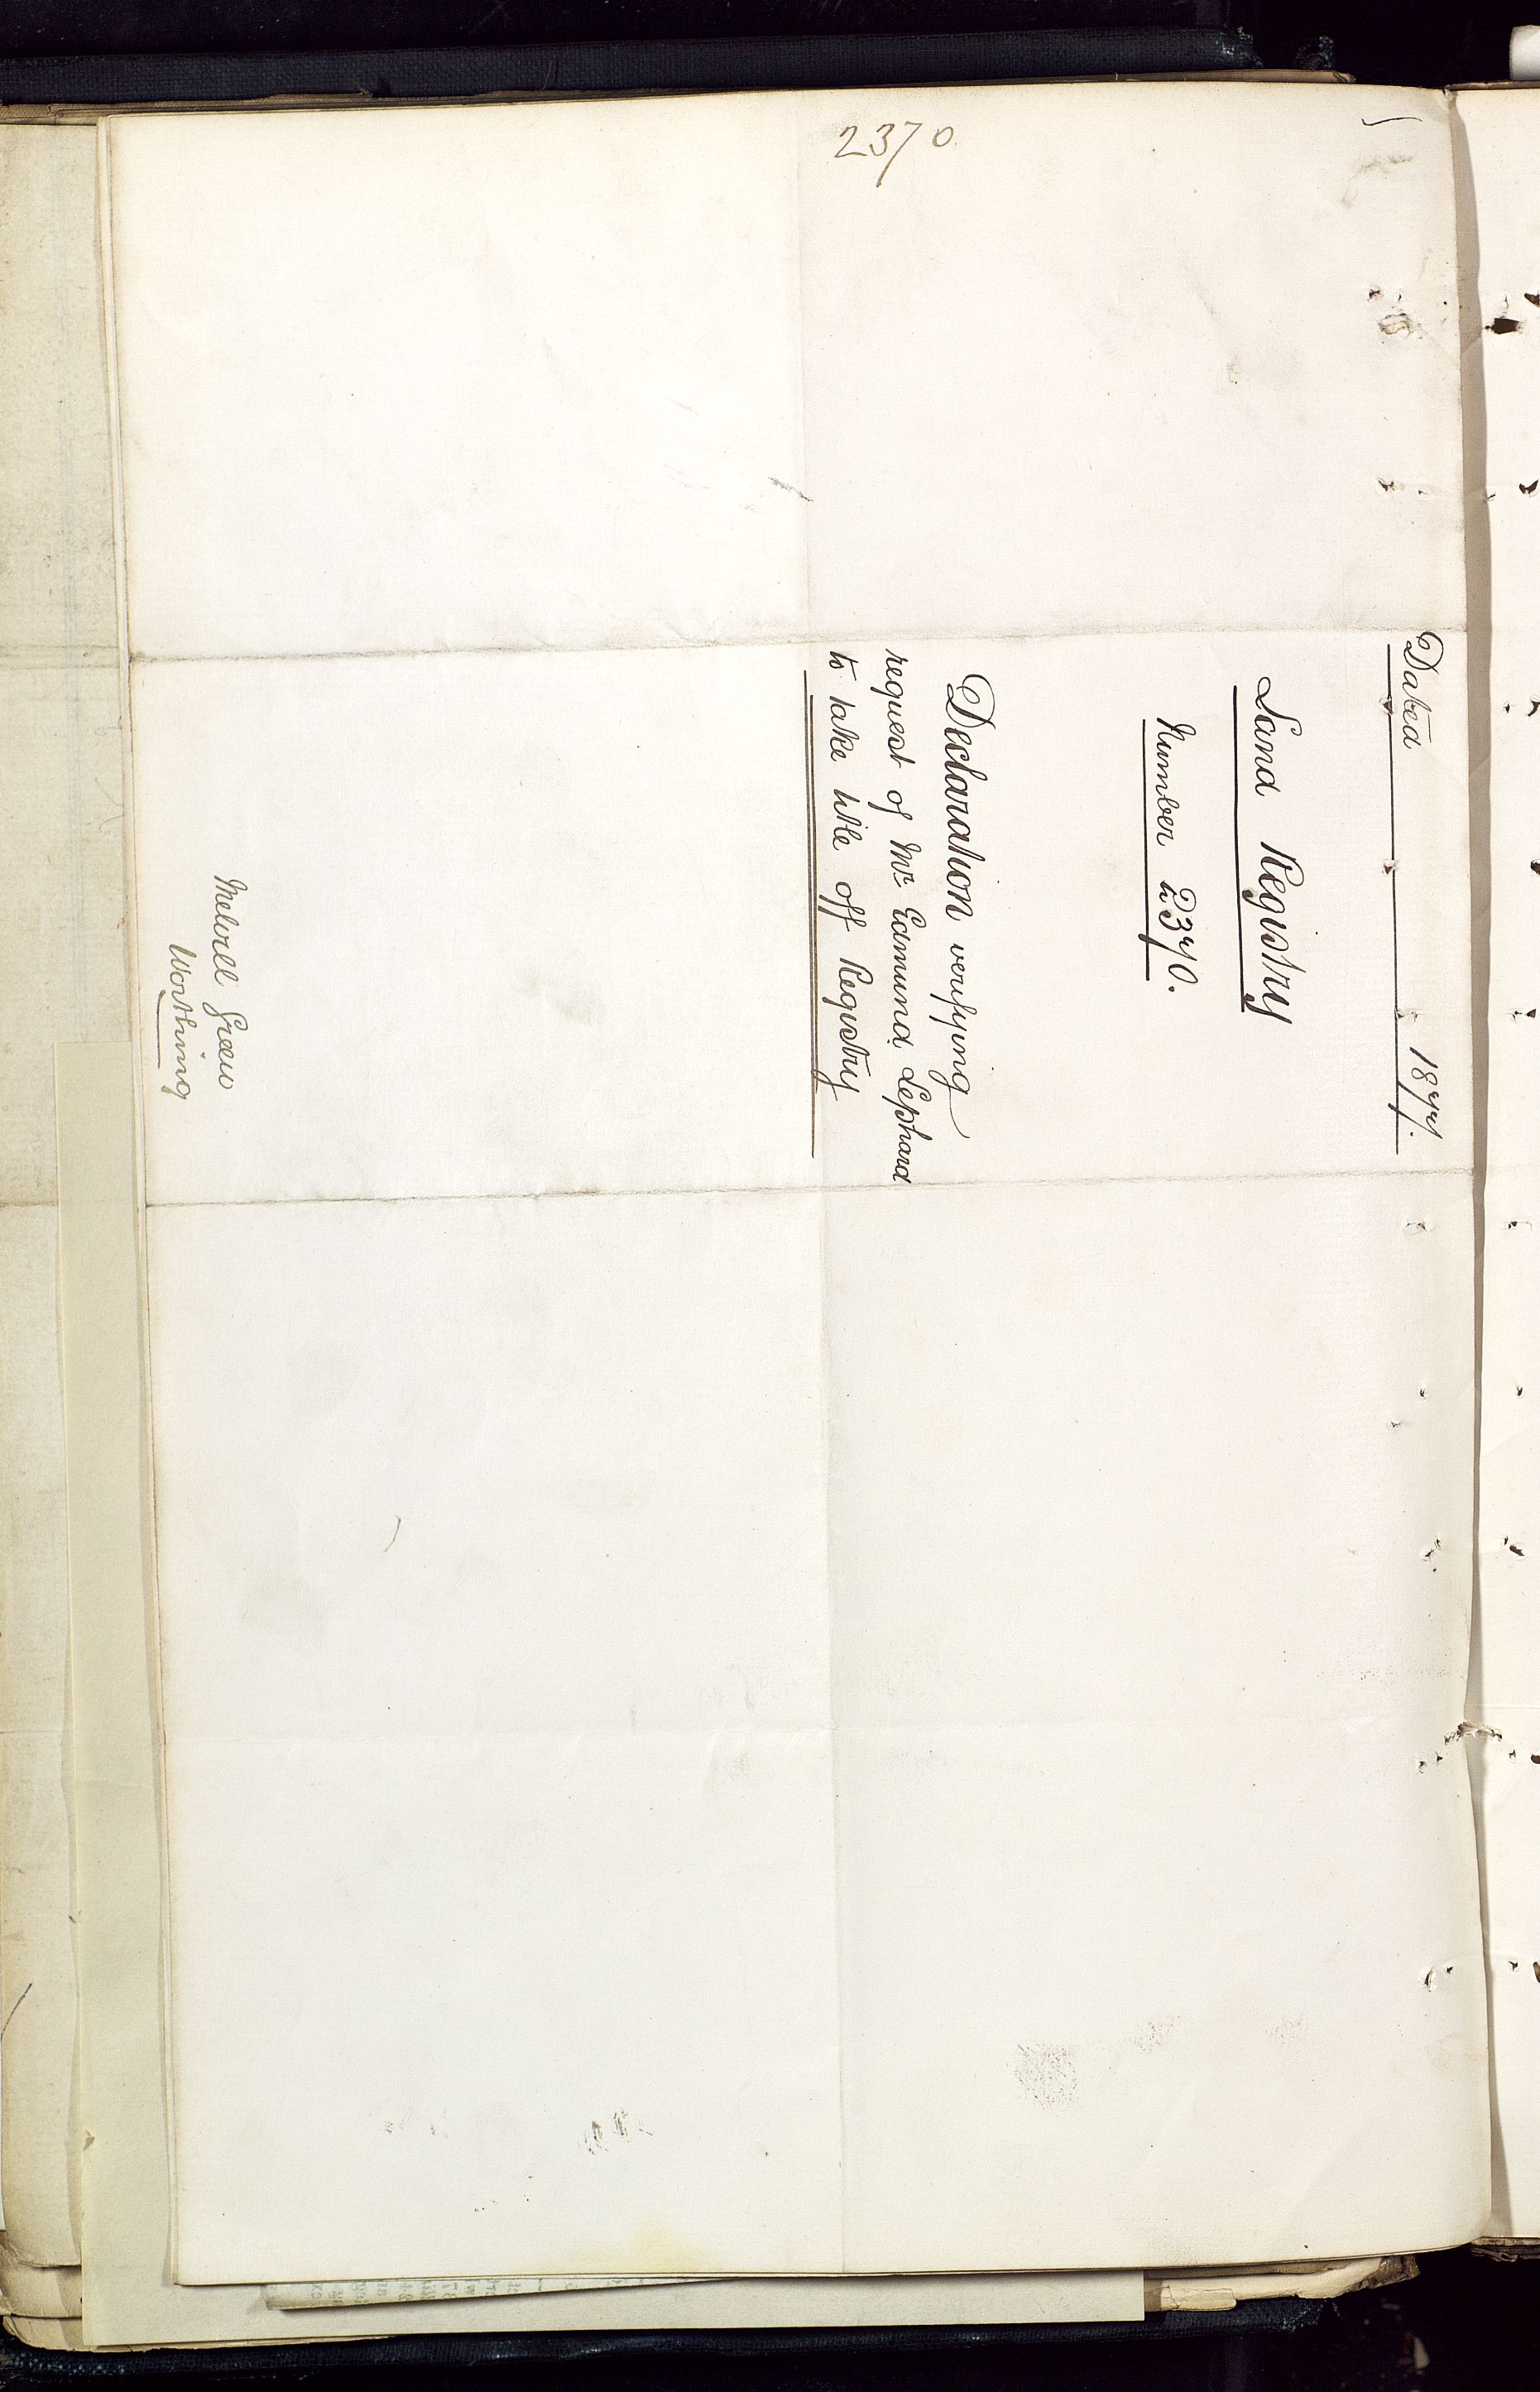 2370
Dated 1877.
Land Registry
Number 2370.
Declaration verifying
request of Mr Edmund Lephard
to take title off Registry
Melvill Green
Worthing